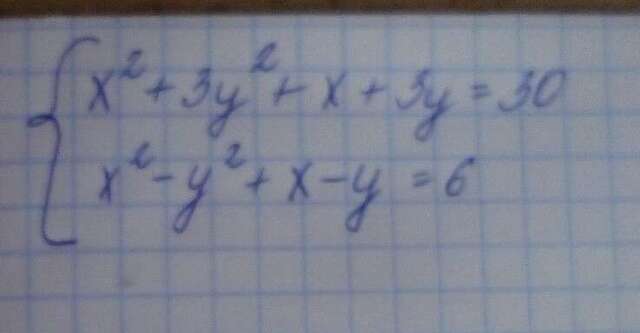 x² + 3y² + x + 3y = 30
x² - y² + x - y = 6